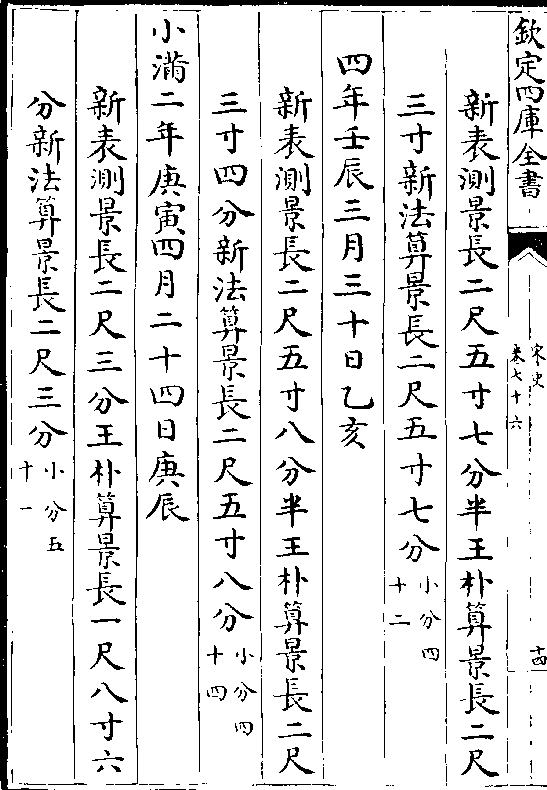 欽定四庫全書
宋史
卷七十六
十四
新表測景長二尺五寸七分半王朴算景長二尺
三寸新法算景長二尺五寸七分小分四十二
四年壬辰三月三十日乙亥
新表測景長二尺五寸八分半王朴算景長二尺
三寸四分新法算景長二尺五寸八分小分四十四
小滿二年庚寅四月二十四日庚辰
新表測景長二尺三分王朴算景長一尺八寸六
分新法算景長二尺三分小分五十一